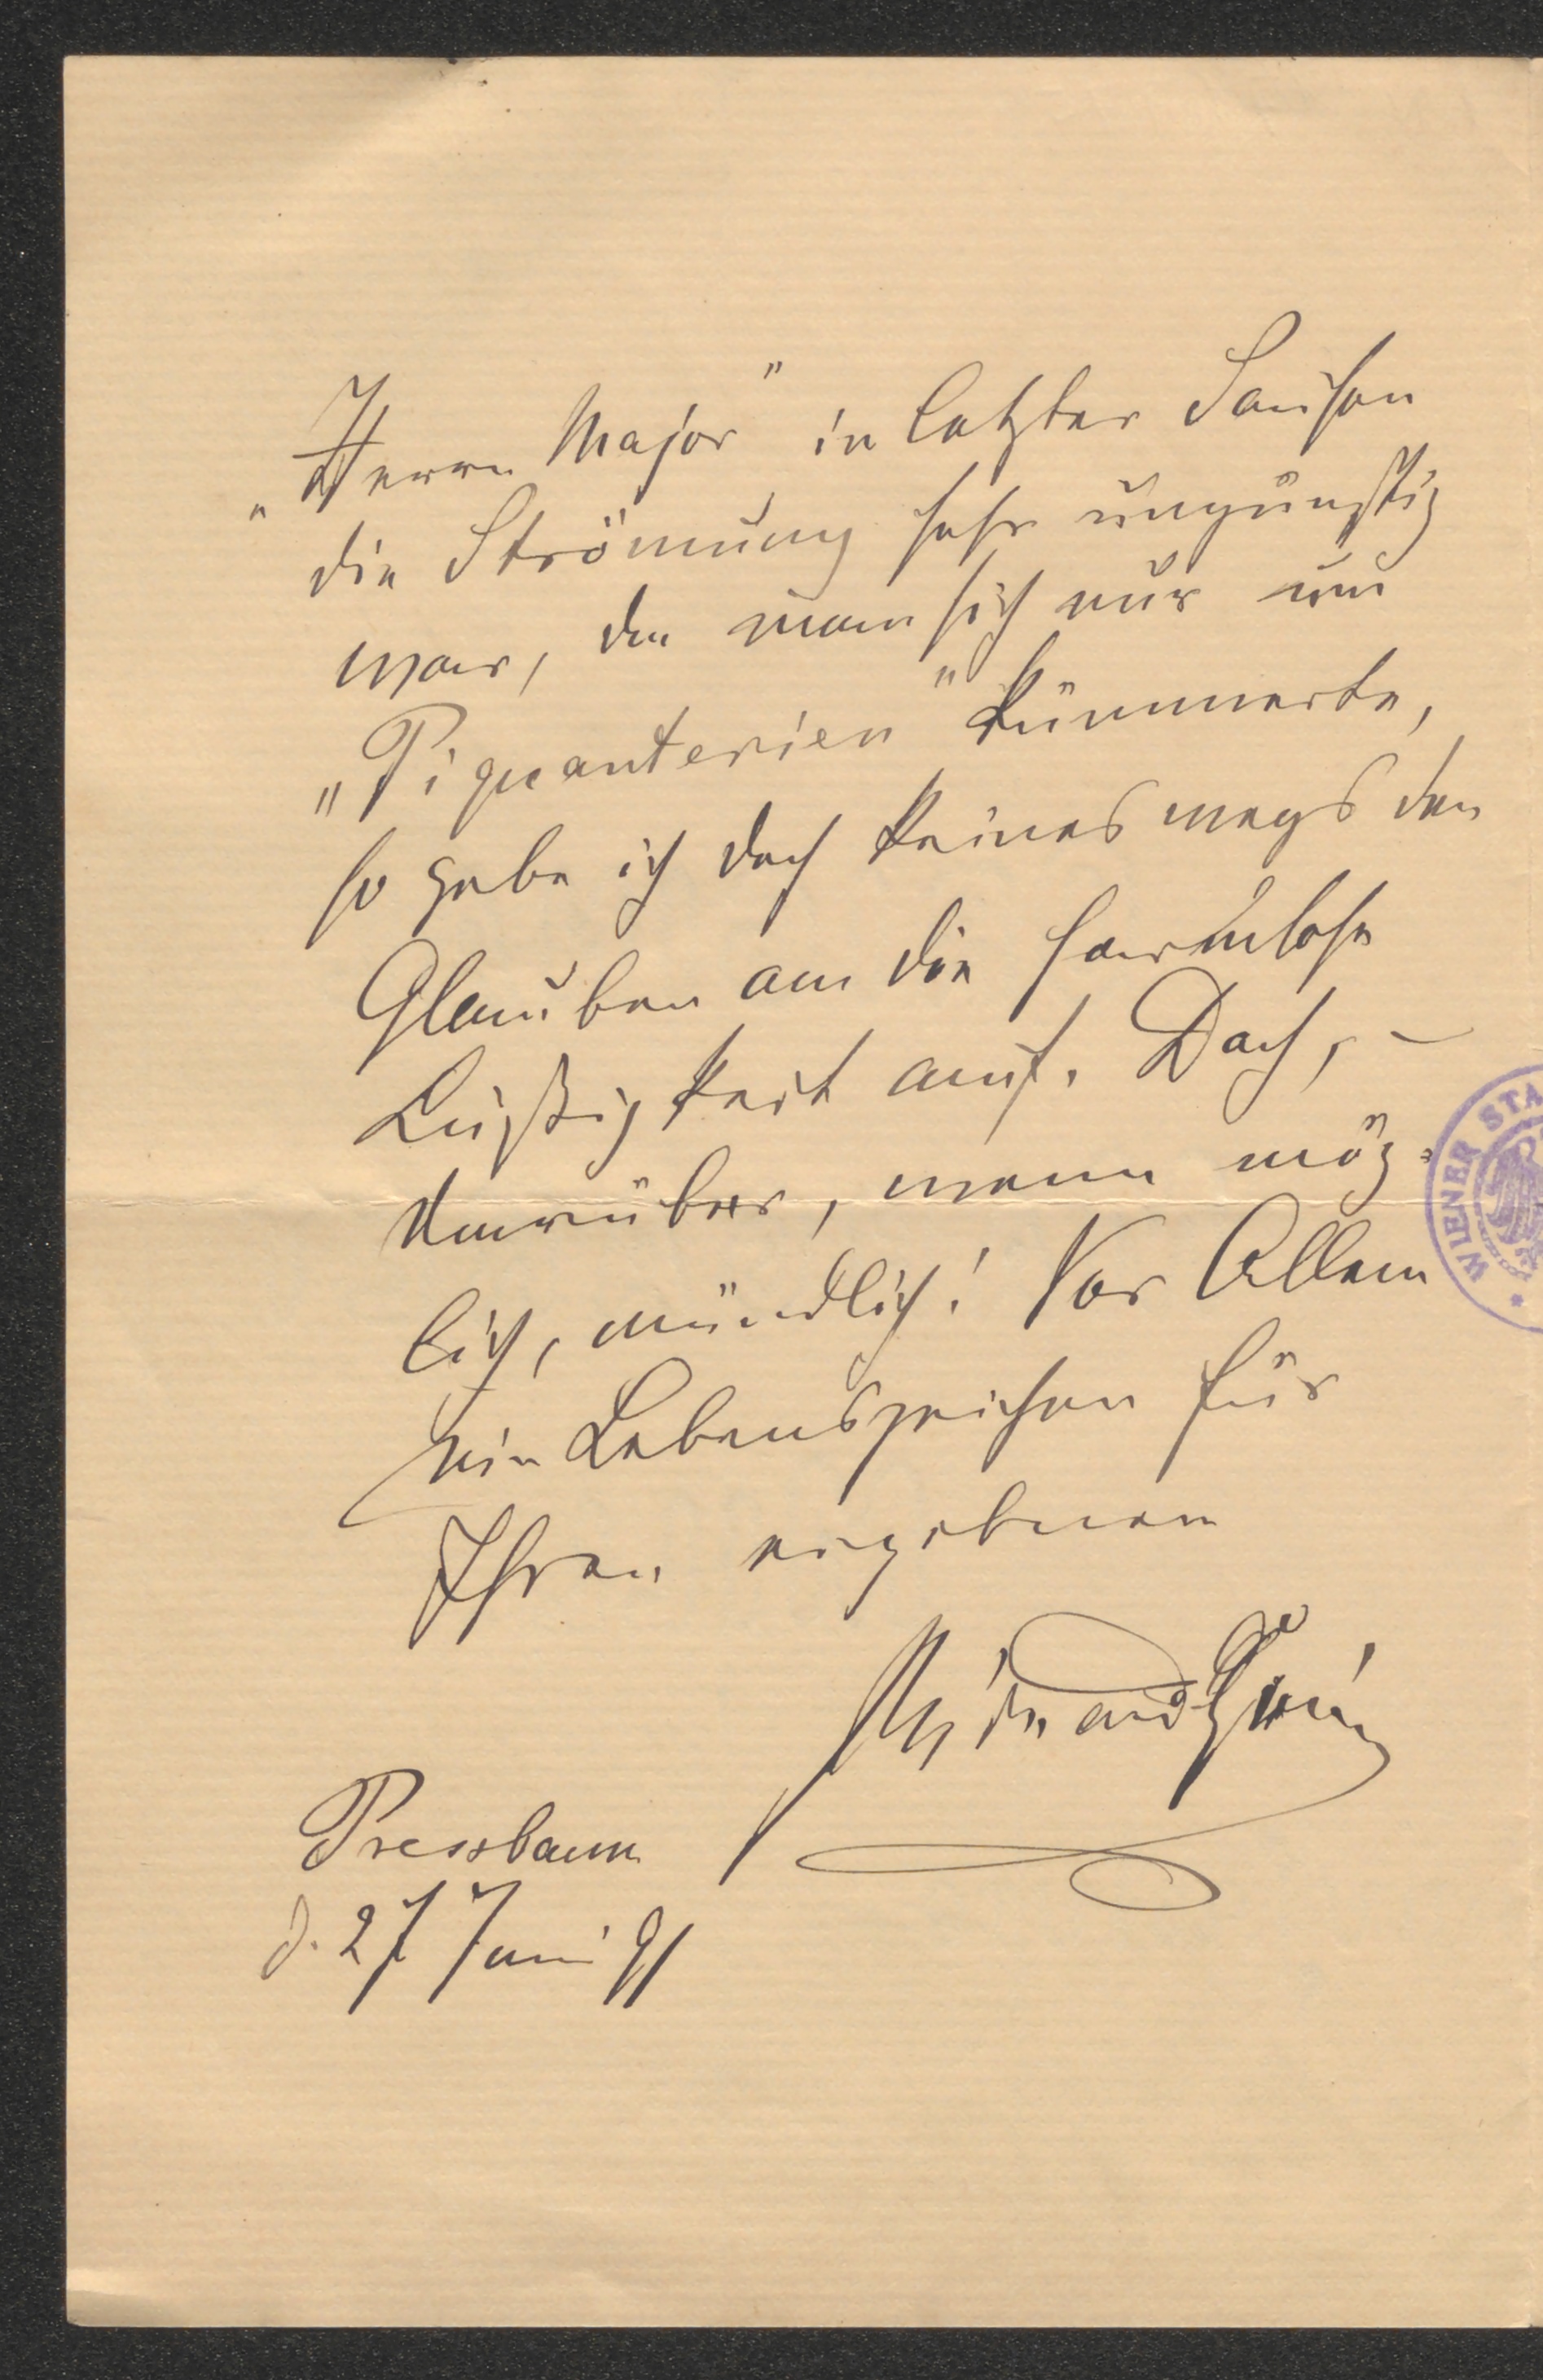 "Herrn Major" in letzter Saison
die Strömung sehr ungünstig
war, da man sich nur um
"Piquanterien" kümmerte,
so gebe ich doch keineswegs den
Glauben an die harmlose
Lustigkeit auf. Doch, –
darüber, wenn mög-
lich, mündlich! Vor Allem
ein Lebenszeichen für
Ihren ergebnen
Pressbaum
d. 27 Juni 91
WIENER STA